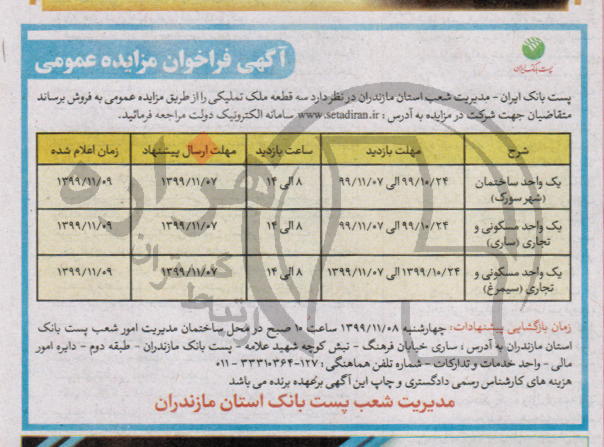 آگهی فراخوان مزایده عمومی
پست بانک ایران
پست بانک ایران - مدیریت شعب استان مازندران در نظر دارد سه قطعه ملک تملیکی را از طریق مزایده عمومی به فروش برساند
متقاضیان جهت شرکت در مزایده به آدرس : www.setadiran.ir سامانه الکترونیک دولت مراجعه فرمائید.
شرح مهلت بازدید ساعت بازدید مهلت ارسال پیشنهاد زمان اعلام شده
یک واحد ساختمان (شهر سورک) ۹۹/۱۰/۲۴ الی ۹۹/۱۱/۰۷ ۸ الی ۱۴ ۱۳۹۹/۱۱/۰۷ ۱۳۹۹/۱۱/۰۹
یک واحد مسکونی و تجاری (ساری) ۹۹/۱۰/۲۴ الی ۹۹/۱۱/۰۷ ۸ الی ۱۴ ۱۳۹۹/۱۱/۰۷ ۱۳۹۹/۱۱/۰۹
یک واحد مسکونی و تجاری (سیمرغ) ۱۳۹۹/۱۰/۲۴ الی ۱۳۹۹/۱۱/۰۷ ۸ الی ۱۴ ۱۳۹۹/۱۱/۰۷ ۱۳۹۹/۱۱/۰۹
زمان بازگشایی پیشنهادات: چهارشنبه ۱۳۹۹/۱۱/۰۸ ساعت ۱۰ صبح در محل ساختمان مدیریت امور شعب پست بانک
استان مازندران به آدرس : ساری خیابان فرهنگ - نبش کوچه شهید علامه - پست بانک مازندران - طبقه دوم - دایره امور
مالی - واحد خدمات و تدارکات - شماره تلفن هماهنگی : ۱۲۷-۳۳۳۱۰۳۶۴ - ۰۱۱
هزینه های کارشناس رسمی دادگستری و چاپ این آگهی برعهده برنده می باشد
مدیریت شعب پست بانک استان مازندران
هزاره
گستران
ارتباط